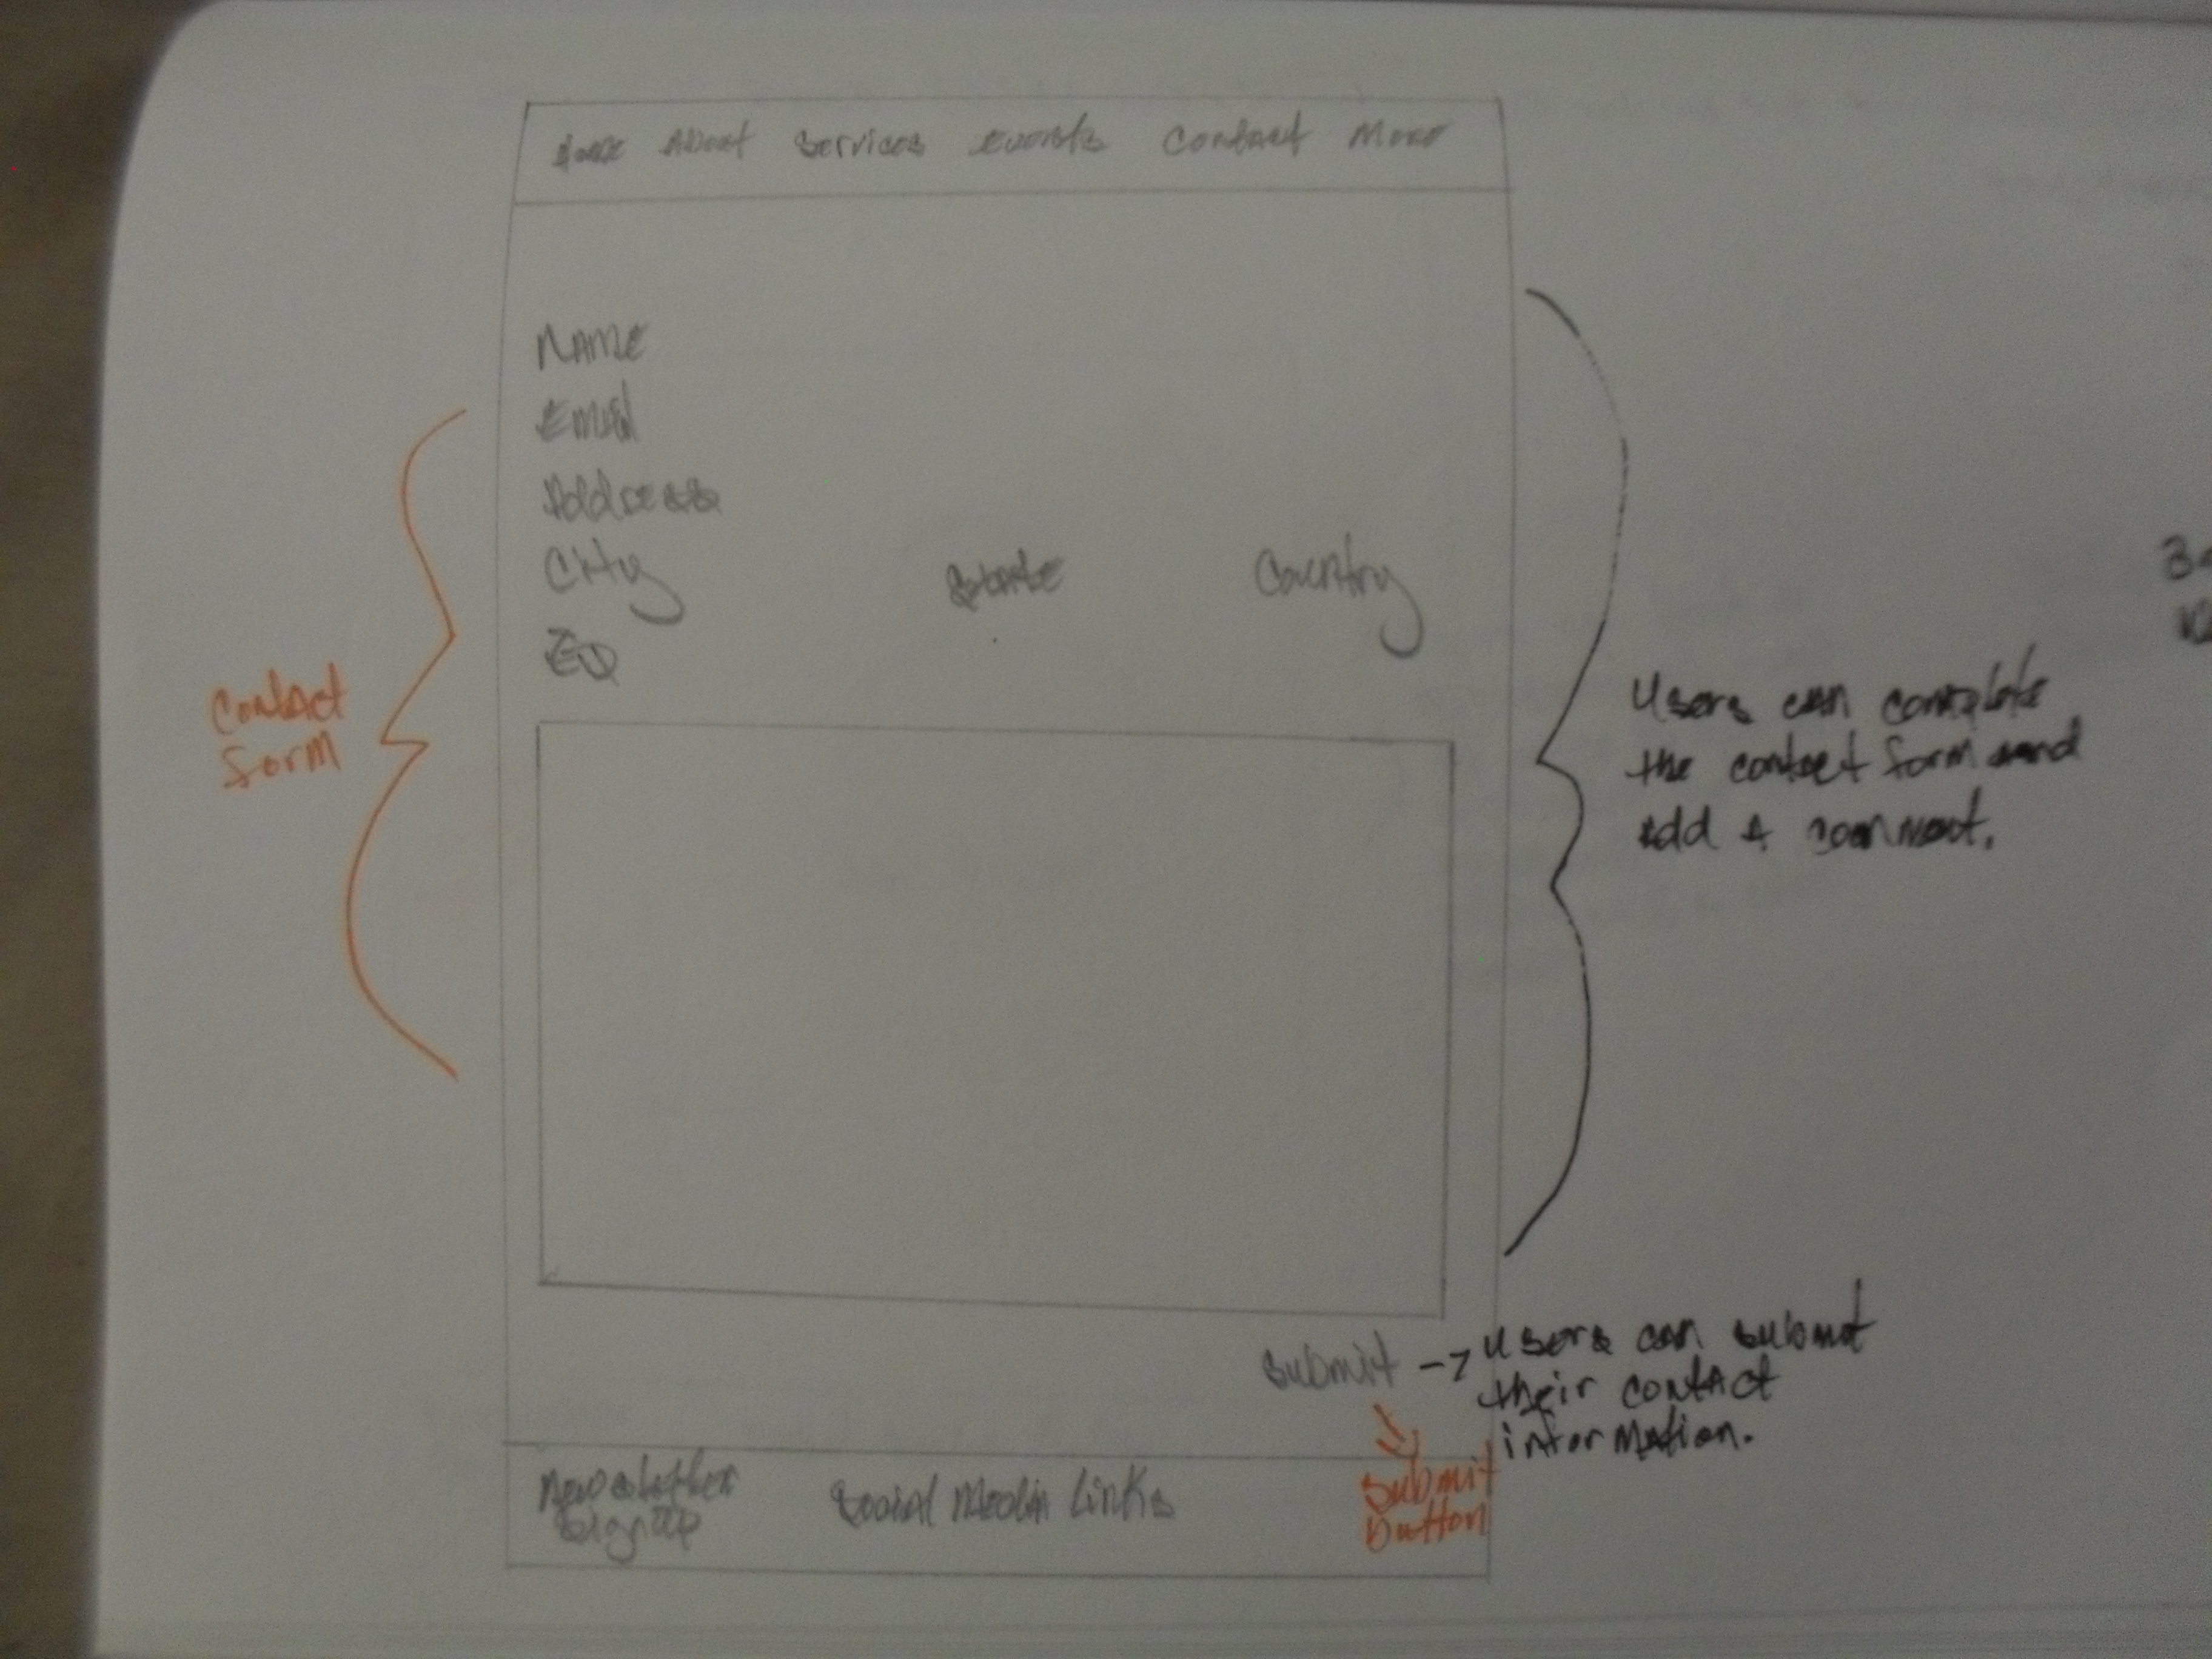 Home About Services Events Contact More
Name
Email
Address
City State Country
Contact
form
Users can complete
the contact form and
add a comment.
Submit -> users can submit
their contact
information.
Newsletter
Signup
Social Media Links
Submit
button